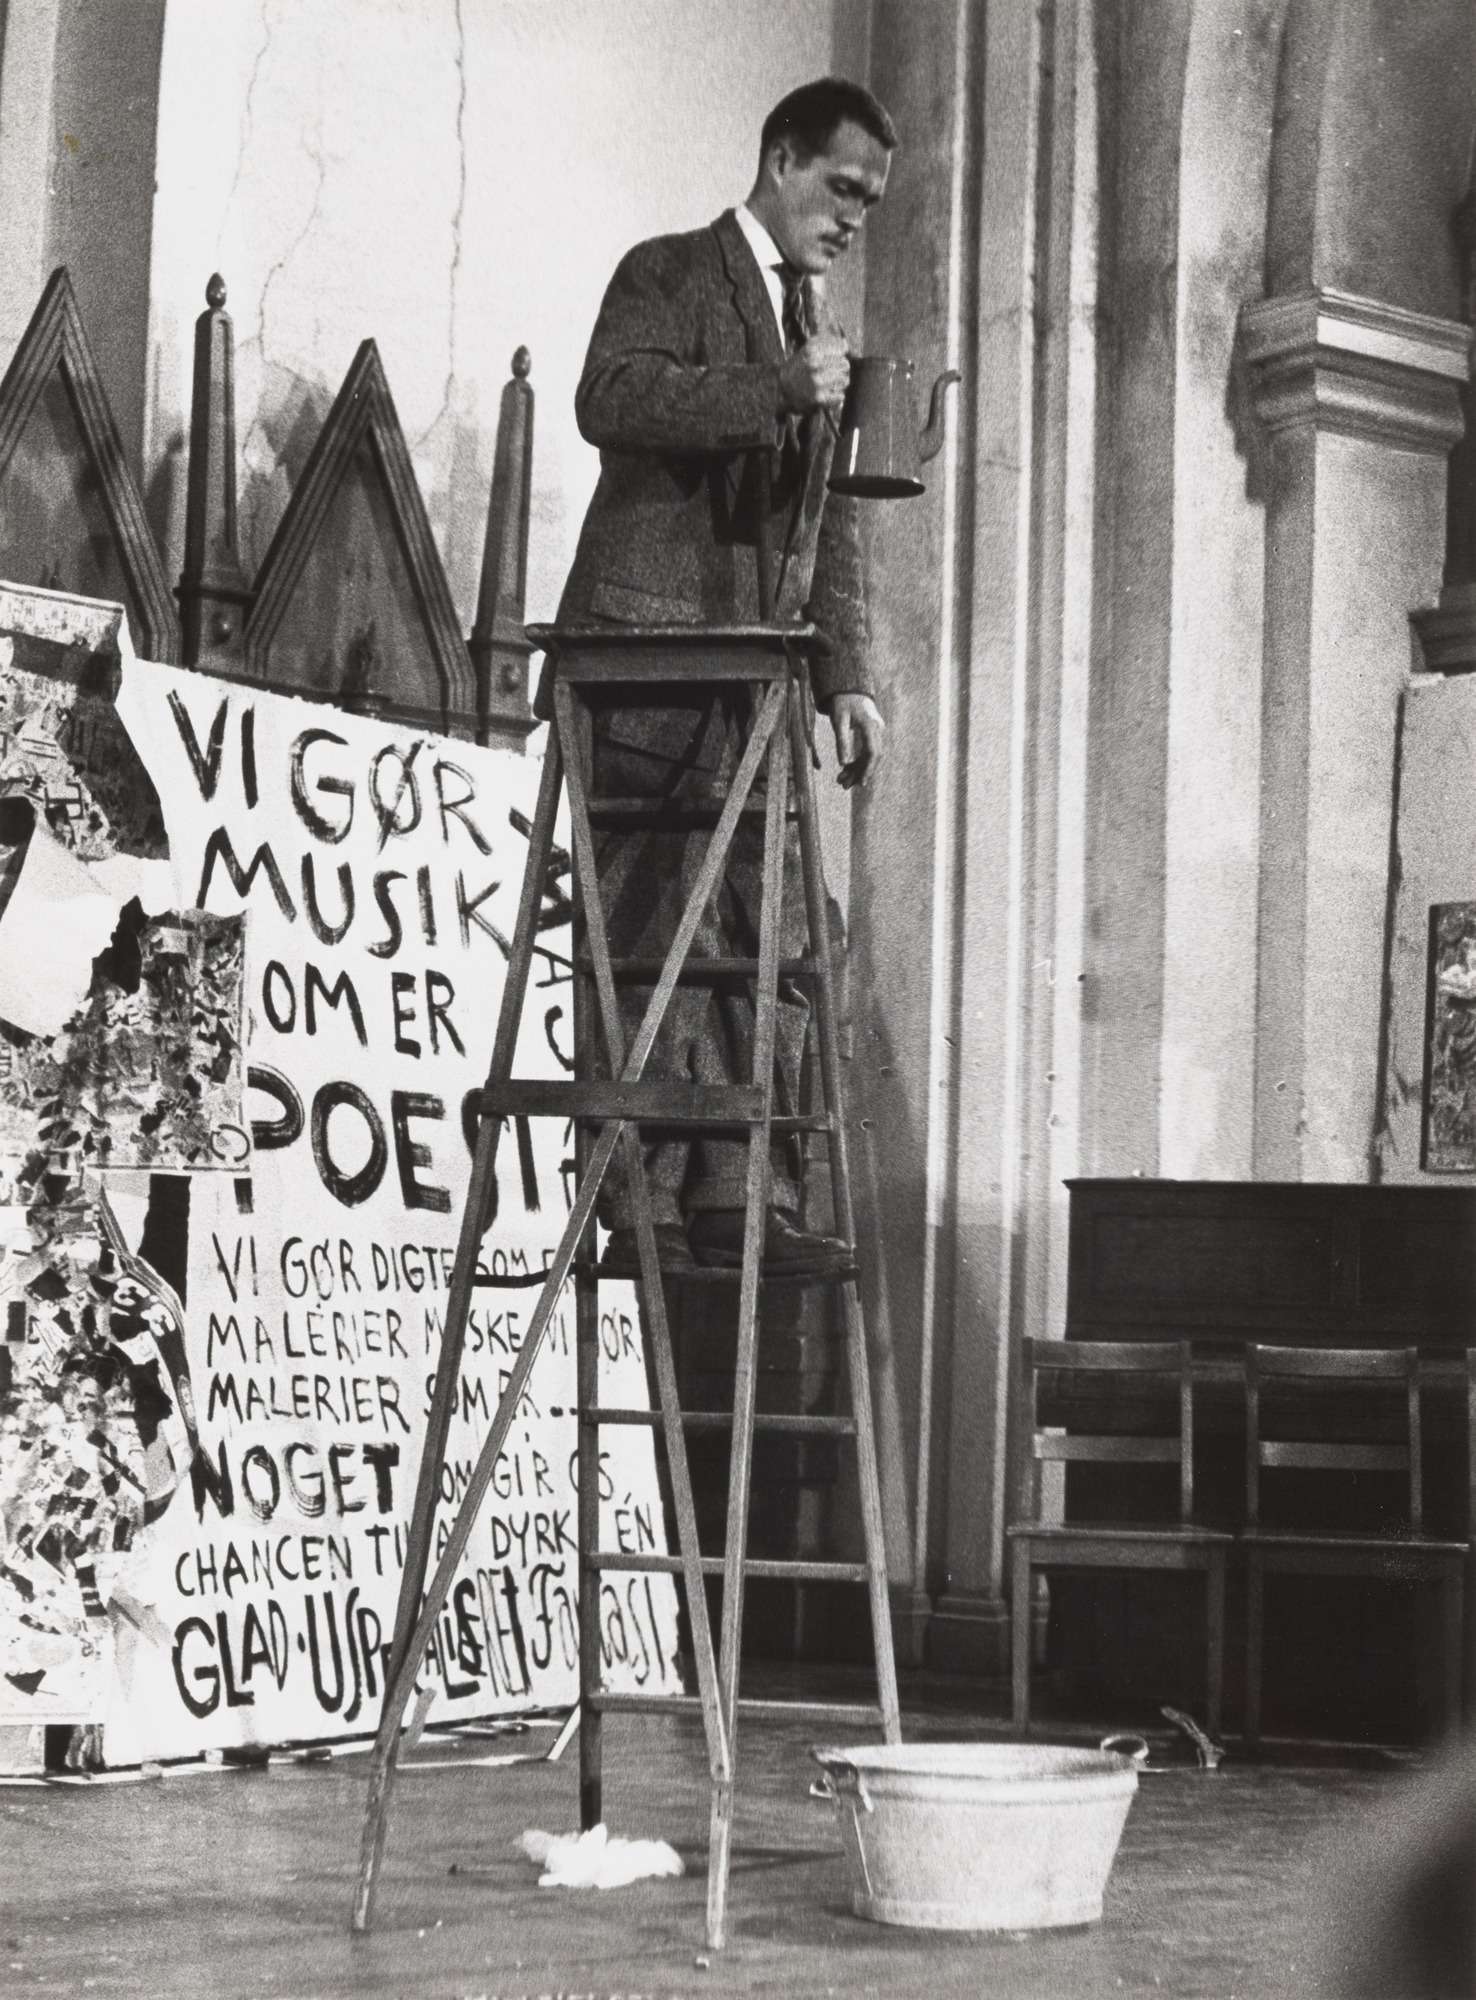 VI GØR
MUSIK
OM ER
POESI
VI GØR DIGTE SOM ER
MALERIER MÅSKE VI GØR
MALERIER SOM ER...
NOGET SOM GIR OS
CHANCEN TIL AT DYRKE ÉN
GLAD·USPECIALISERET FANTASI